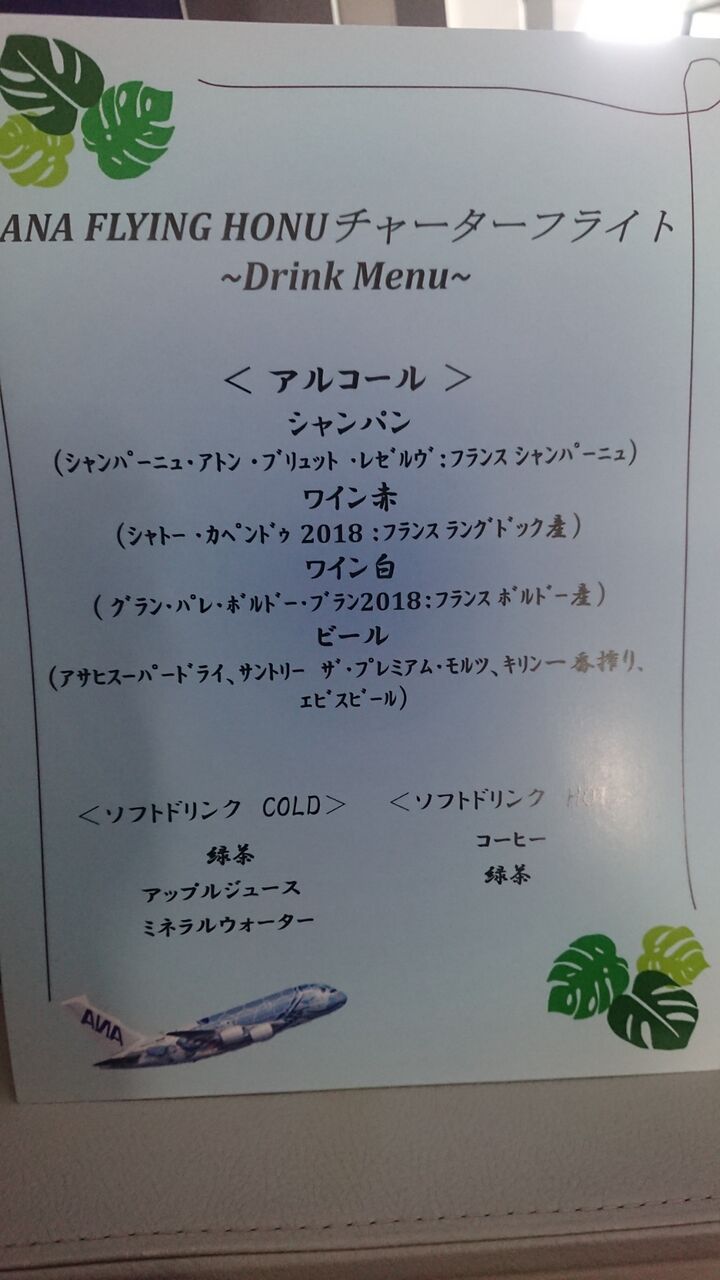 ANA FLYING HONUチャーターフライト
~Drink Menu~
＜ アルコール ＞
シャンパン
(ｼｬﾝﾊﾟｰﾆｭ･ｱﾄﾝ ･ﾌﾞﾘｭｯﾄ ･ﾚｾﾞﾙｳﾞ:ﾌﾗﾝｽ ｼｬﾝﾊﾟｰﾆｭ)
ワイン赤
(ｼｬﾄｰ ･ｶﾍﾟﾝﾄﾞｩ 2018 :ﾌﾗﾝｽ ﾗﾝｸﾞﾄﾞｯｸ産)
ワイン白
(ｸﾞﾗﾝ･ﾊﾟﾚ･ﾎﾞﾙﾄﾞｰ･ﾌﾞﾗﾝ2018:ﾌﾗﾝｽ ﾎﾞﾙﾄﾞｰ産)
ビール
(ｱｻﾋｽｰﾊﾟｰﾄﾞﾗｲ､ｻﾝﾄﾘｰ ｻﾞ･ﾌﾟﾚﾐｱﾑ･ﾓﾙﾂ､ｷﾘﾝ一番搾り､
ｴﾋﾞｽﾋﾞｰﾙ)
＜ソフトドリンク COLD＞
緑茶
アップルジュース
ミネラルウォーター
＜ソフトドリンク HOT
コーヒー
緑茶
ANA